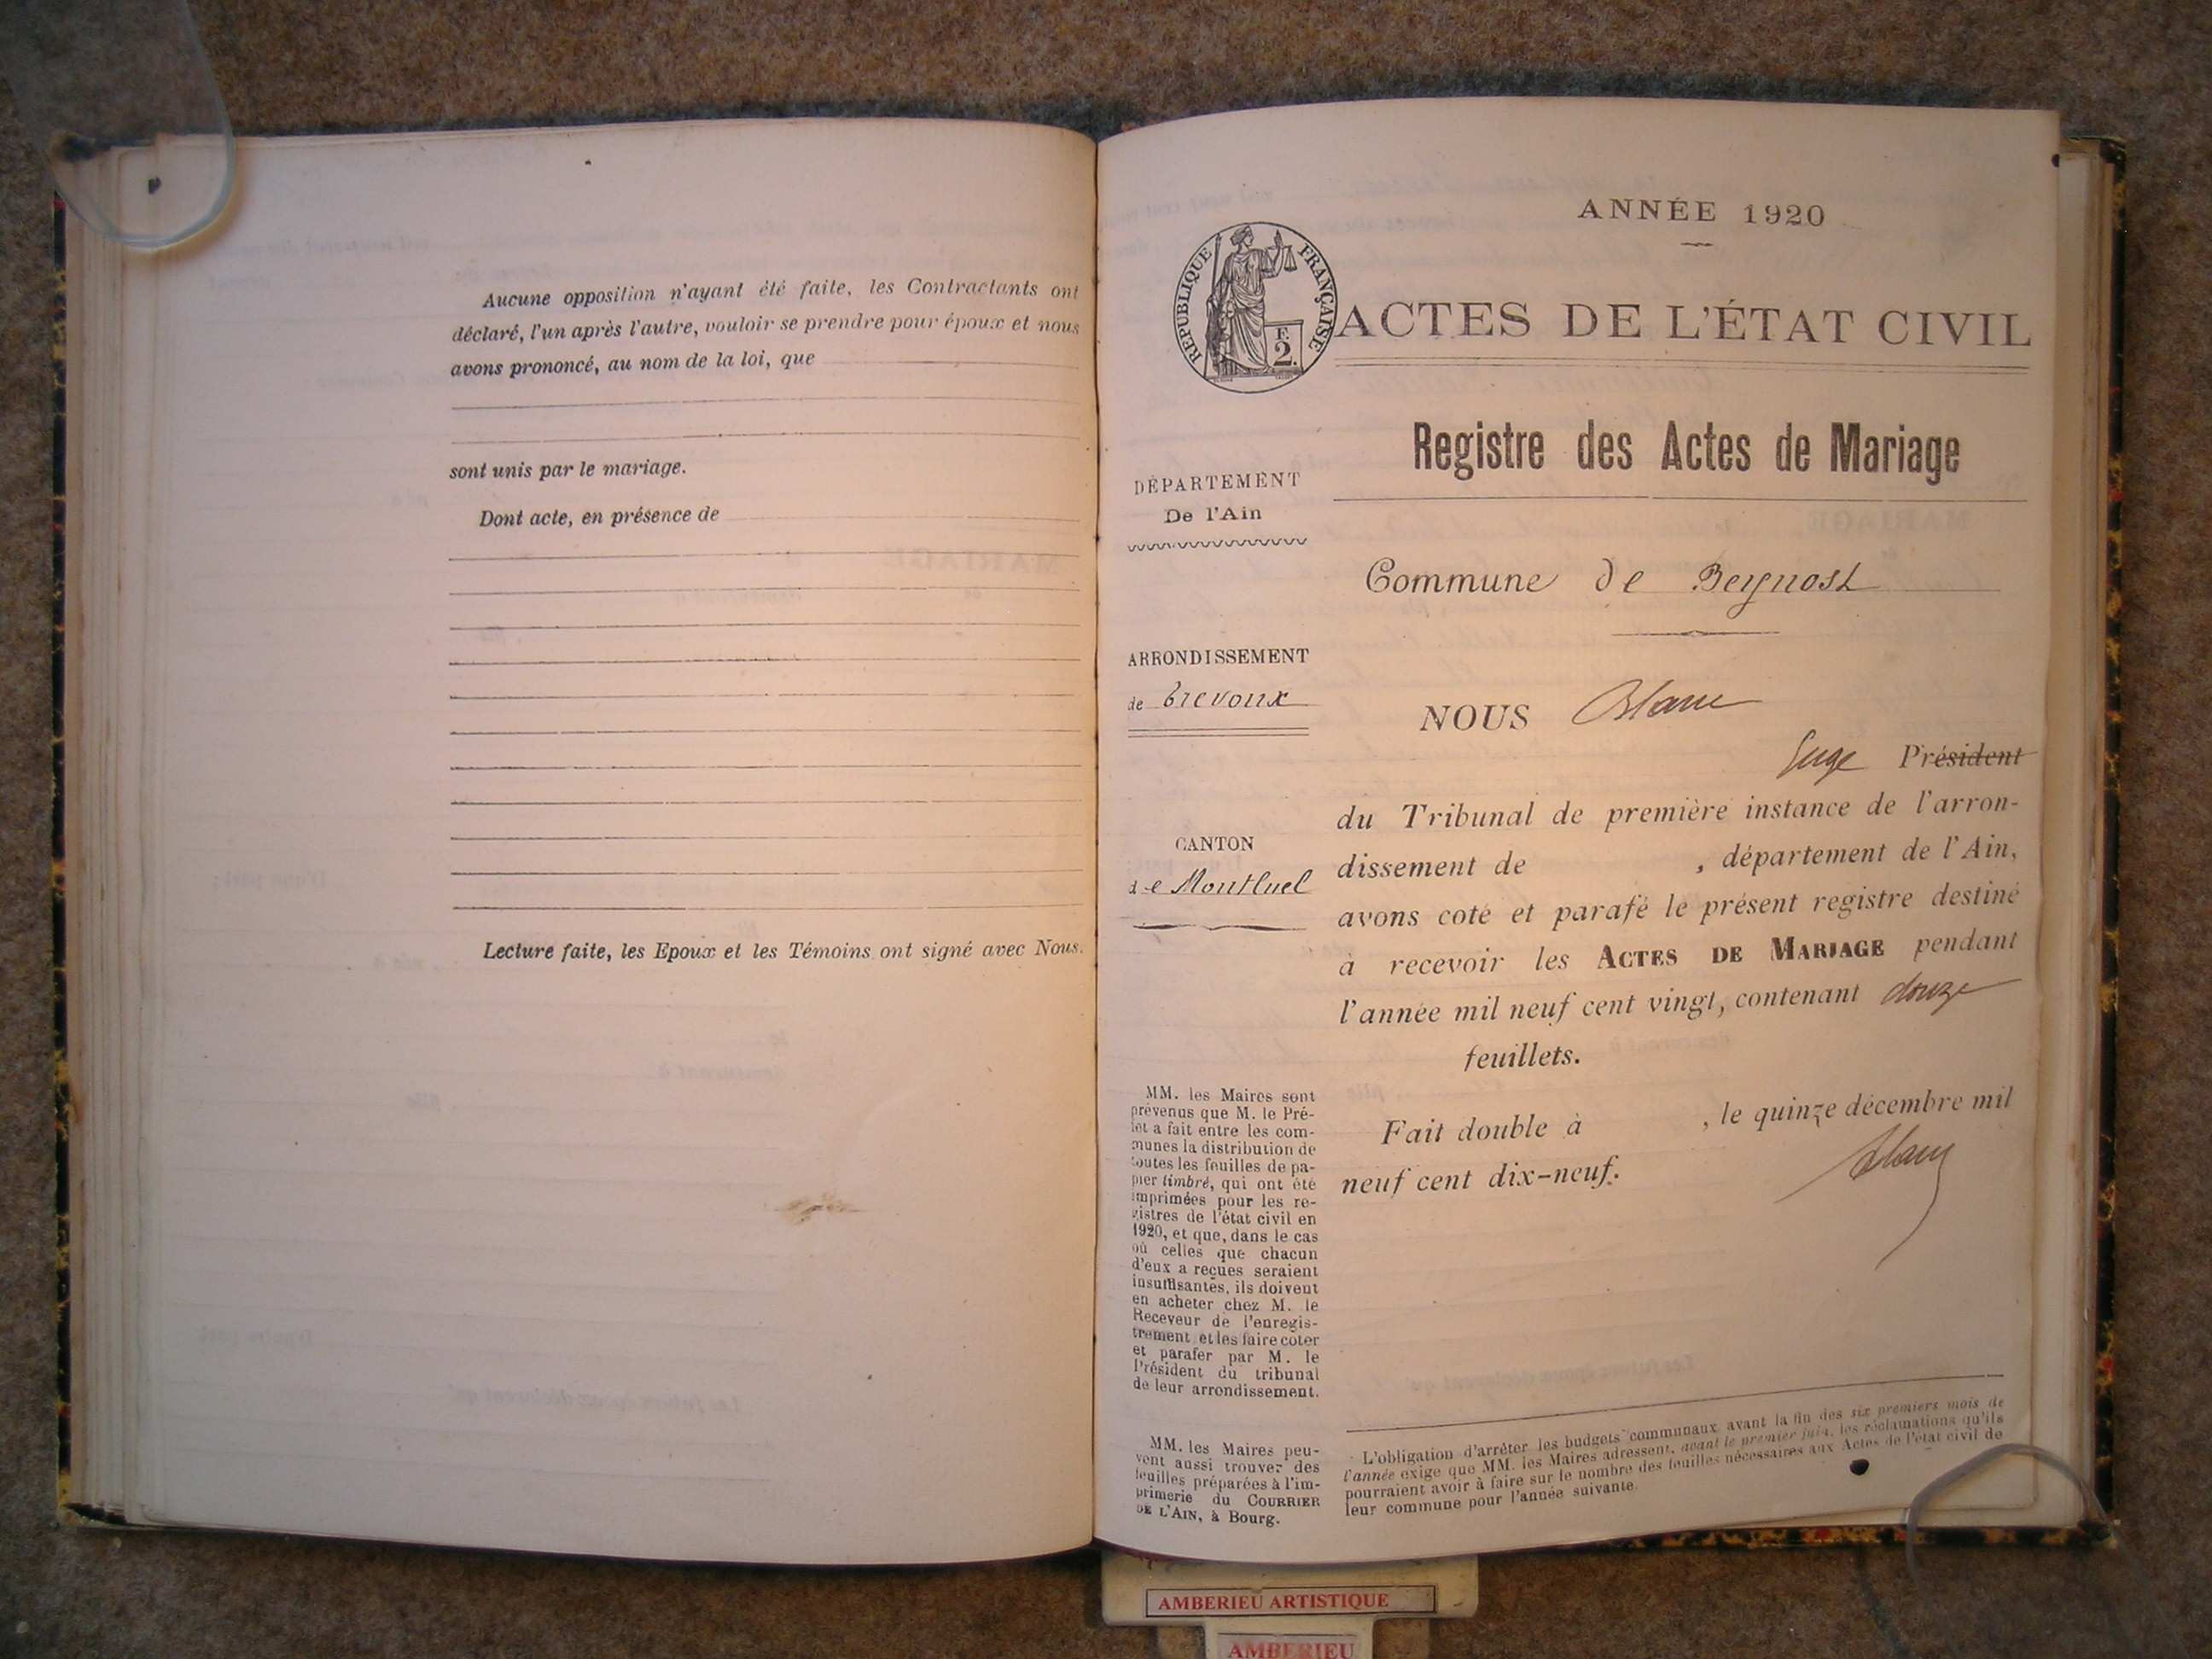 Aucune opposition n'ayant été faite, les Contractants ont
déclaré, l'un après l'autre, vouloir se prendre pour époux et nous
avons prononcé, au nom de la loi, que
sont unis par le mariage.
Dont acte, en présence de
Lecture faite, les Epoux et les Témoins ont signé avec Nous.
ANNÉE 1920
RÉPUBLIQUE FRANÇAISE
F.
2.
ACTES DE L'ÉTAT CIVIL
Registre des Actes de Mariage
DÉPARTEMENT
De l'Ain
Commune de Beynost
ARRONDISSEMENT
de Trevoux
CANTON
de Montluel
NOUS Blanc
Juge Président
du Tribunal de première instance de l'arron-
dissement de , département de l'Ain,
avons coté et parafé le présent registre destiné
à recevoir les ACTES DE MARIAGE pendant
l'année mil neuf cent vingt, contenant douze
feuillets.
Fait double à , le quinze décembre mil
neuf cent dix-neuf.
Blanc
MM. les Maires sont
prévenus que M. le Pré-
fet a fait entre les com-
munes la distribution de
toutes les feuilles de pa-
pier timbré, qui ont été
imprimées pour les re-
gistres de l'état civil en
1920, et que, dans le cas
où celles que chacun
d'eux a reçues seraient
insuffisantes, ils doivent
en acheter chez M. le
Receveur de l'enregis-
trement et les faire coter
et parafer par M. le
Président du tribunal
de leur arrondissement.
MM. les Maires peu-
vent aussi trouver des
feuilles préparées à l'im-
primerie du COURRIER
DE L'AIN, à Bourg.
L'obligation d'arrêter les budgets communaux avant la fin des six premiers mois de
l'année exige que MM. les Maires adressent, avant le premier juin, les réclamations qu'ils
pourraient avoir à faire sur le nombre des feuilles nécessaires aux Actes de l'état civil de
leur commune pour l'année suivante.
AMBERIEU ARTISTIQUE
AMBERIEU